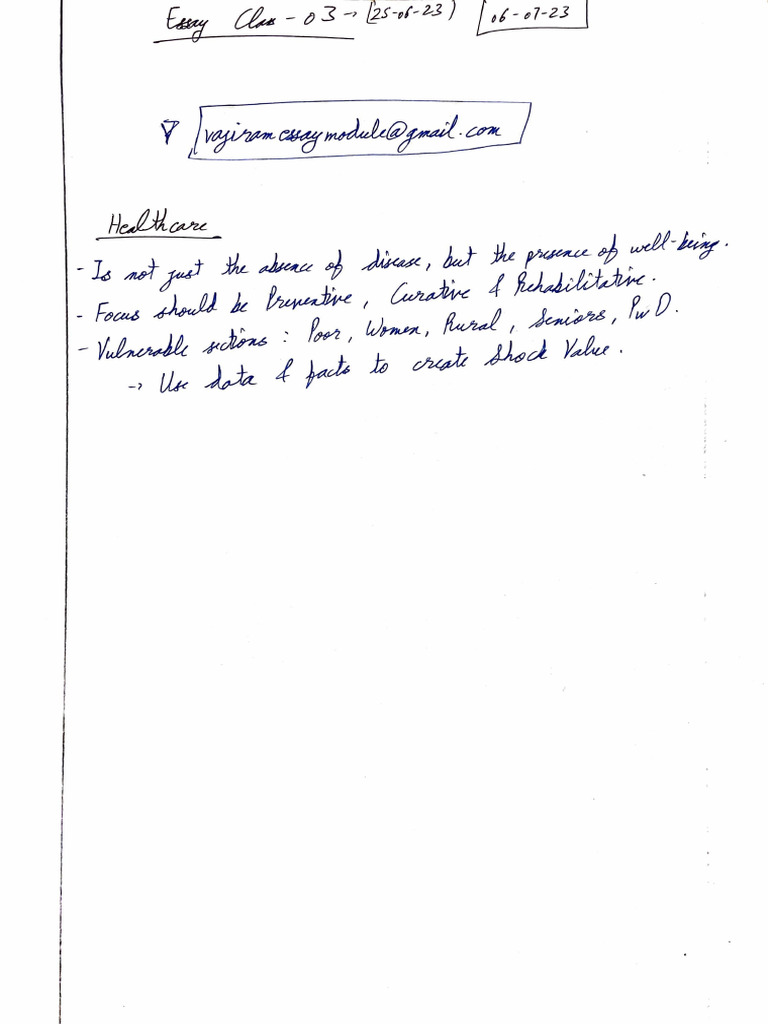 Essay Class - 03 → [25-06-23) [06-07-23]
vajiramessaymodule@gmail.com
Healthcare
- Is not just the absence of disease, but the presence of well-being.
- Focus should be Preventive, Curative & Rehabilitative.
- Vulnerable sections : Poor, Women, Rural, Seniors, PwD.
→ Use data & facts to create Shock Value.